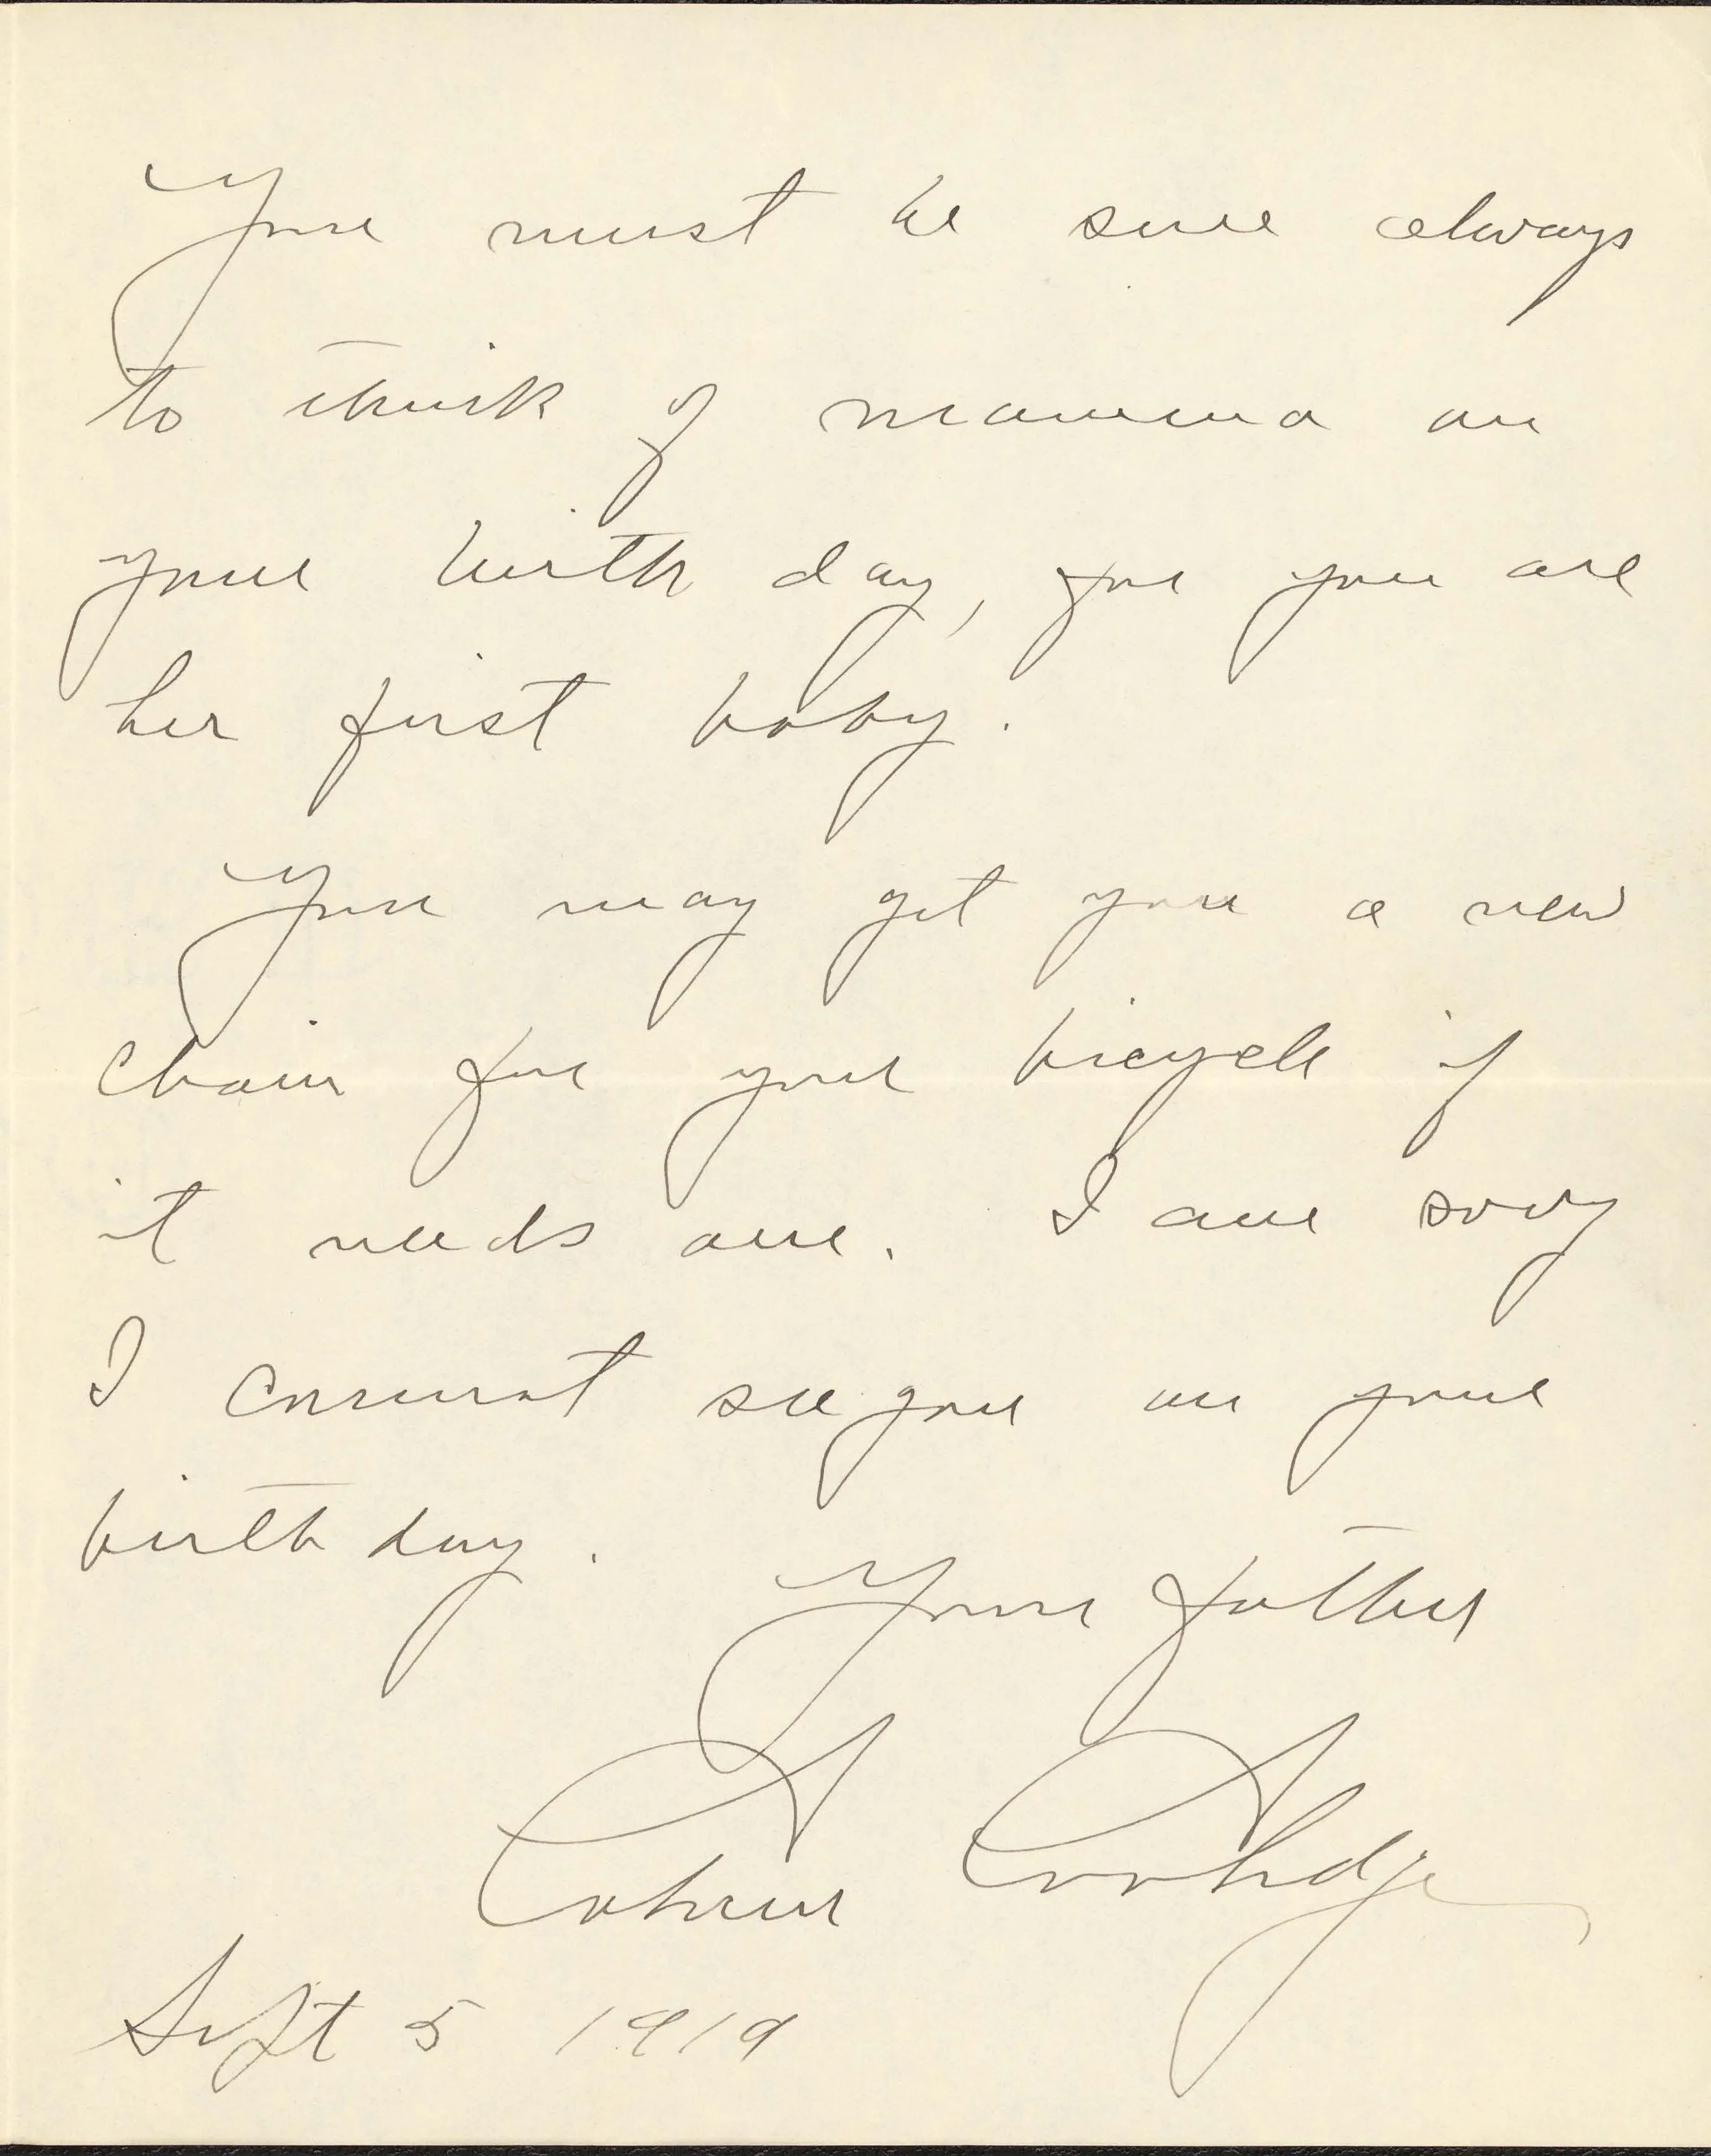 You must be sure always
to think of mamma on
your birth day, for you are
her first baby.
You may get you a new
chain for your bicycle if
it needs one. I am sorry
I cannot see you on your
birth day.
Your father
Calvin Coolidge
Sept 5 1919